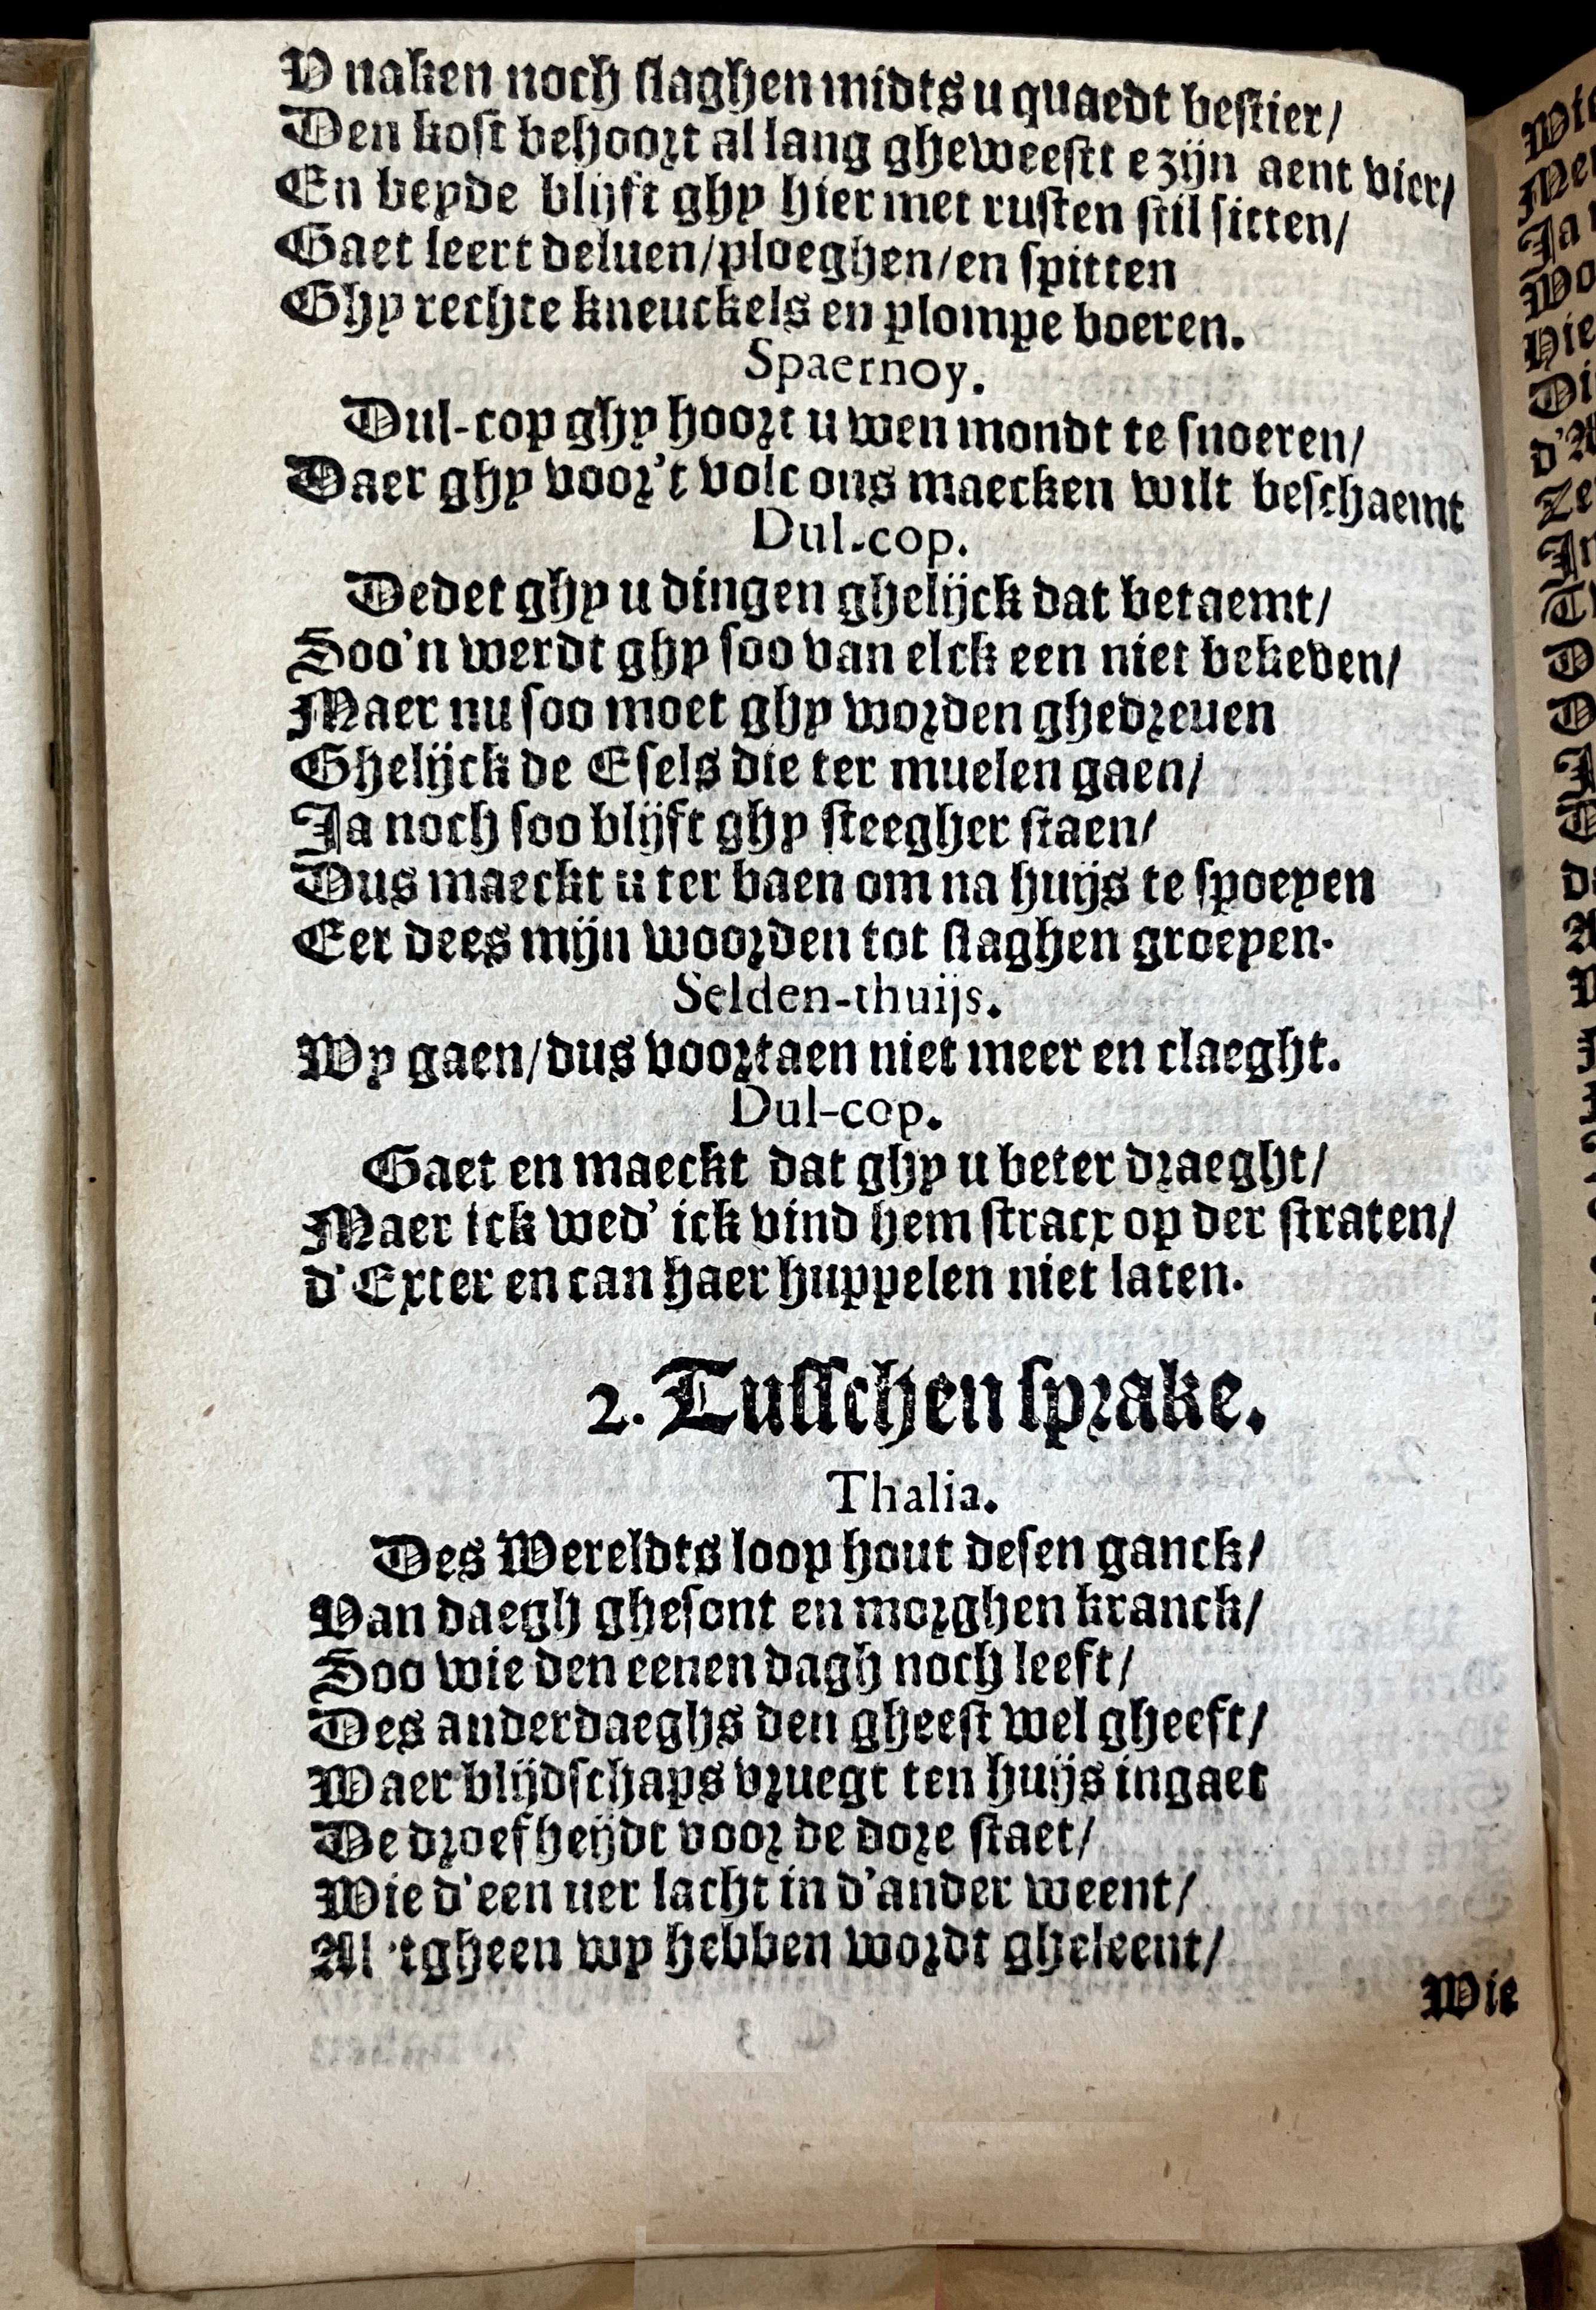 V naken noch slaghen midts u quaedt bestier/
Den kost behoort al lang gheweestt e zijn aent vier/
En beyde blijft ghy hier met rusten stil sitten/
Gaet leert deluen/ploeghen/en spitten
Ghy rechte kneuckels en plompe boeren.
Spaernoy.
Dul-cop ghy hoort u wen mondt te snoeren/
Daer ghy voor't volc ons maecken wilt beschaemt
Dul-cop.
Dedet ghy u dingen ghelijck dat betaemt/
Soo'n werdt ghy soo van elck een niet bekeven/
Maer nu soo moet ghy worden ghedreuen
Ghelijck de Esels die ter muelen gaen/
Ja noch soo blijft ghy steegher staen/
Dus maeckt u ter baen om na huijs te spoeyen
Eer dees mijn woorden tot slaghen groeyen.
Selden-thuijs.
Wy gaen/dus voortaen niet meer en claeght.
Dul-cop.
Gaet en maeckt dat ghy u beter draeght/
Maer ick wed' ick vind hem stracx op der straten/
d'Exter en can haer huppelen niet laten.
2. Tusschensprake.
Thalia.
Des Wereldts loop hout desen ganck/
Van daegh ghesont en morghen kranck/
Soo wie den eenen dagh noch leeft/
Des anderdaeghs den gheest wel gheeft/
Waer blijdschaps vruegt ten huijs ingaet
De droefheijdt voor de dore staet/
Wie d'een uer lacht in d'ander weent/
Al 'tgheen wy hebben wordt gheleent/
Wie